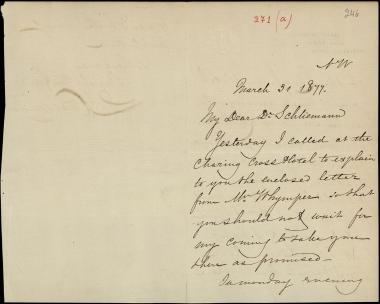 271 (a)
246
N W
March 31 1877.
My Dear Dr Schliemann
Yesterday I called at the
Charing Cross Hotel to explain
to you the enclosed letter
from Mr Whymper so that
you should not wait for
my coming to take you
there as promised—
On monday evening